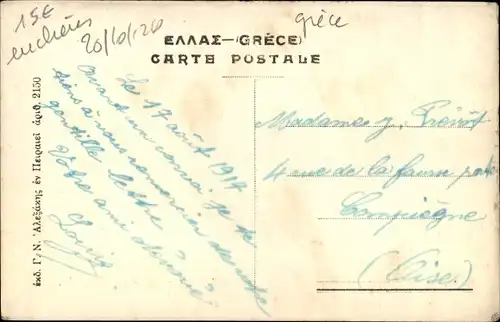 15€
enchères
20/10/20
grèce
ΕΛΛΑΣ—(GRÈCE)
CARTE POSTALE
ἐκδ. Γ. Ν. Ἀλεξάκης ἐν Πειραιεῖ ἀριθ. 2150
Le 17 août 1917
Avant un convoi je te
tiens à vous remercier de votre
gentille lettre
Votre ami dévoué
Louis
Madame J. Prévôt
4 rue de la
Compiègne
(Oise)